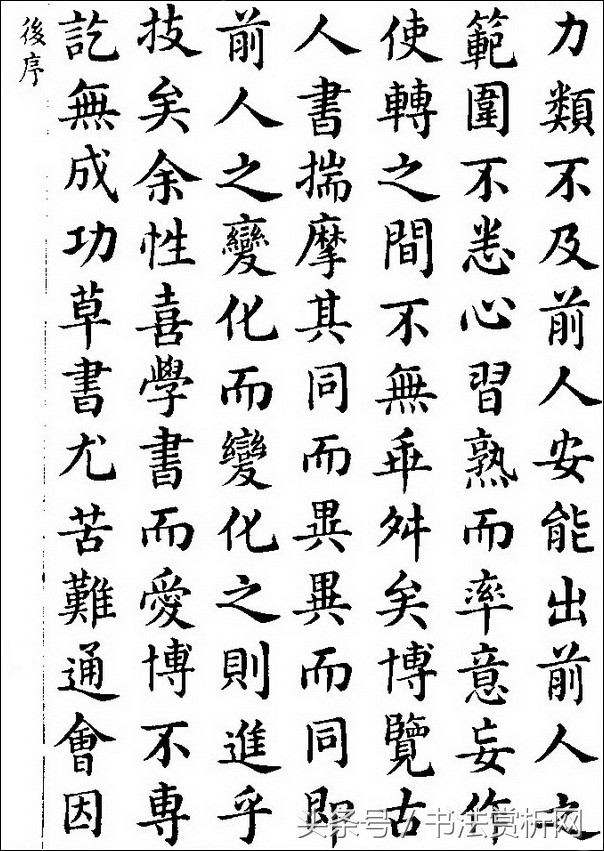 力類不及前人安能出前人之
範圍不悉心習熟而率意妄作
使轉之間不無乖舛矣博覽古
人書揣摩其同而異異而同即
前人之變化而變化之則進乎
技矣余性喜學書而愛博不專
訖無成功草書尤苦難通會因
後序
头条号 / 书法赏析网